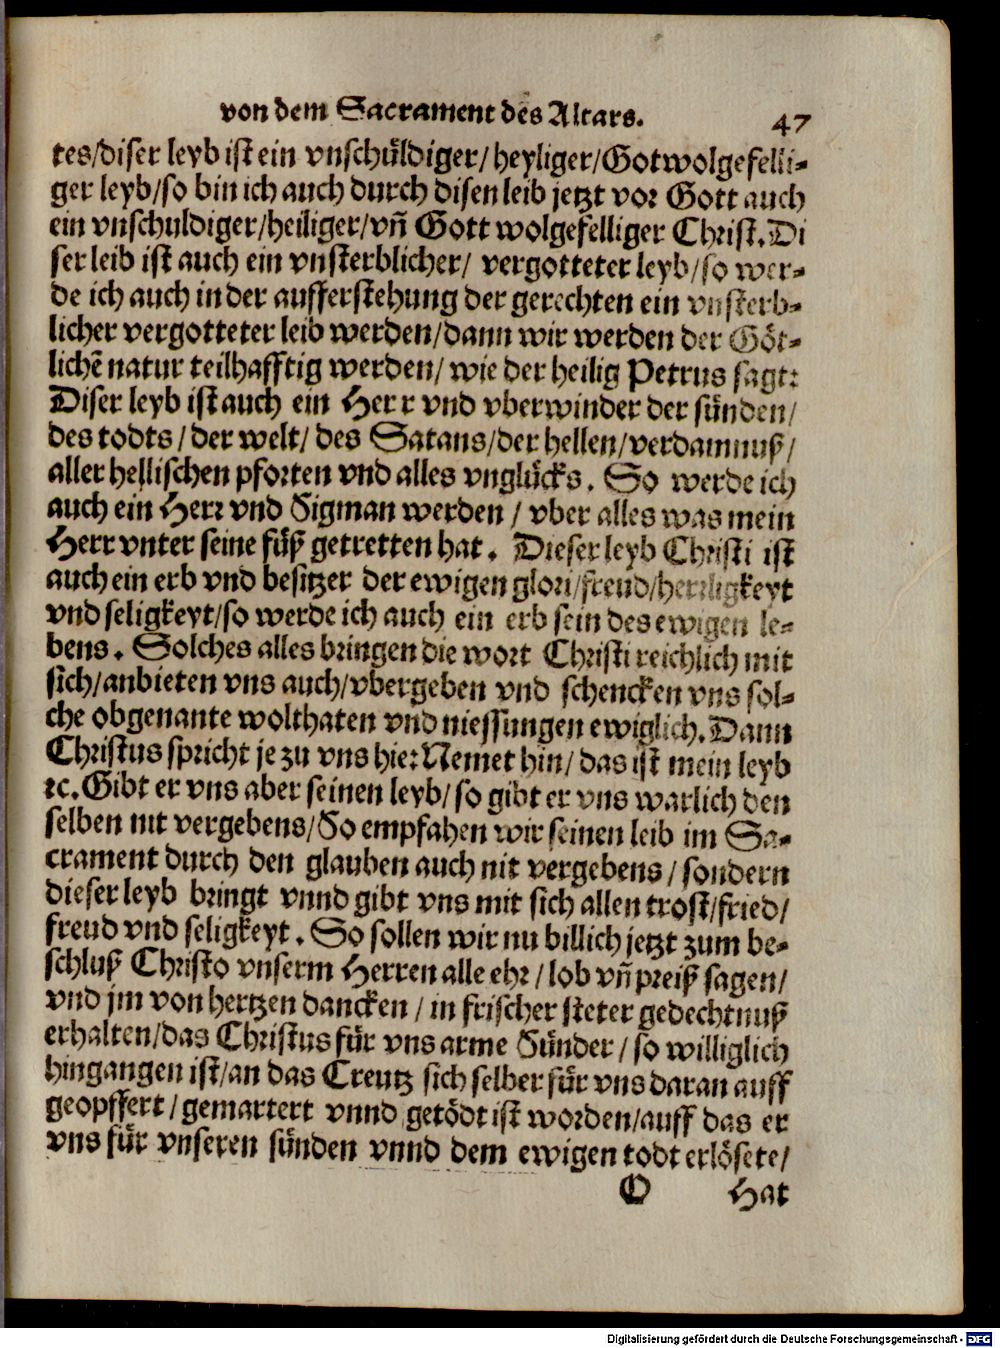 von dem Sacrament des Altars.
47
tes/diser leyb ist ein vnschuͤldiger/ heyliger/Gotwolgefelli⸗
ger leyb/so bin ich auch durch disen leib jetzt vor Gott auch
ein vnschuldiger/heiliger/vñ Gott wolgefelliger Christ. Di
ser leib ist auch ein vnsterblicher/ vergotteter leyb/so wer⸗
de ich auch in der aufferstehung der gerechten ein vnsterb⸗
licher vergotteter leib werden/dann wir werden der Goͤt⸗
lichẽ natur teilhafftig werden/ wie der heilig Petrus sagt:
Diser leyb ist auch ein Herr vnd vberwinder der suͤnden/
des todts/ der welt/ des Satans/der hellen/verdamnuß/
aller hellischen pforten vnd alles vngluͤcks. So werde ich
auch ein Herr vnd Sigman werden / vber alles was mein
Herr vnter seine fuͤß getretten hat. Dieser leyb Christi ist
auch ein erb vnd besitzer der ewigen glori/freud/herrligkeyt
vnd seligkeyt/so werde ich auch ein erb sein des ewigen le⸗
bens. Solches alles bringen die wort Christi reichlich mit
sich/anbieten vns auch/vbergeben vnd schencken vns sol⸗
che obgenante wolthaten vnd niessungen ewiglich. Dann
Christus spricht je zu vns hie: Nemet hin/ das ist mein leyb
ꝛc. Gibt er vns aber seinen leyb/ so gibt er vns warlich den
selben nit vergebens/So empfahen wir seinen leib im Sa⸗
crament durch den glauben auch nit vergebens/ sondern
dieser leyb bringt vnnd gibt vns mit sich allen trost/fried/
freud vnd seligkeyt. So sollen wir nu billich jetzt zum be⸗
schluß Christo vnserm Herren alle ehr/ lob vñ preiß sagen/
vnd jm von hertzen dancken / in frischer steter gedechtnuß
erhalten/das Christus fuͤr vns arme Suͤnder / so williglich
hingangen ist/an das Creutz sich selber fuͤr vns daran auff
geopffert/ gemartert vnnd getoͤdt ist worden/auff das er
vns fuͤr vnseren suͤnden vnnd dem ewigen todt erloͤsete/
O Hat
Digitalisierung gefördert durch die Deutsche Forschungsgemeinschaft - DFG